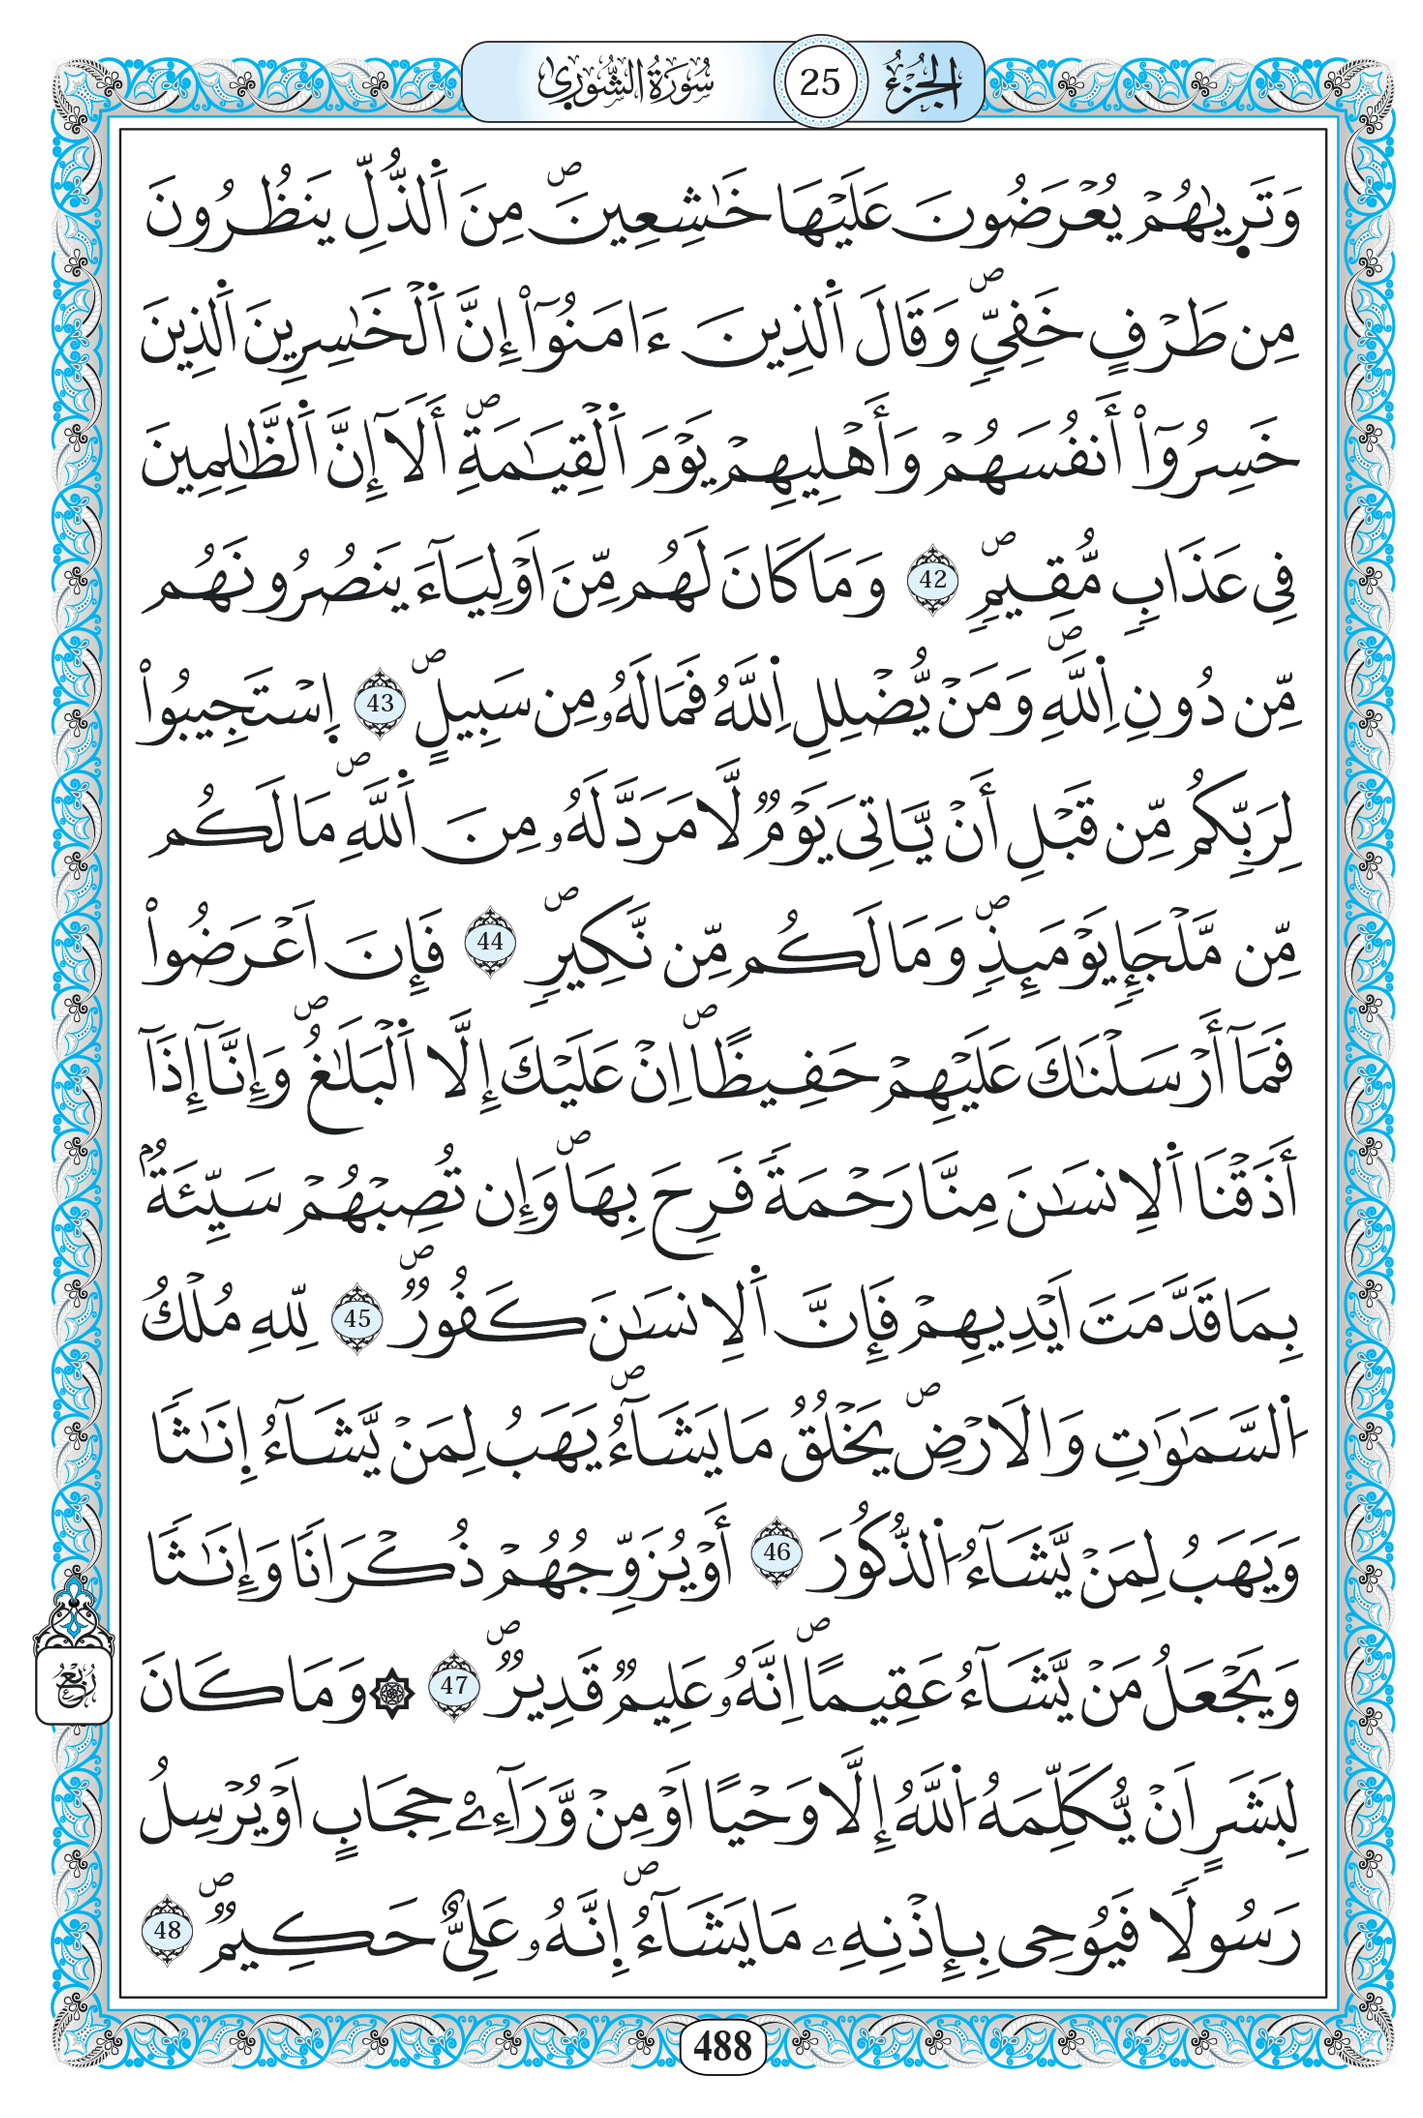 الجزء 25 سورة الشورى
وَتَر۪يٰهُمْ يُعْرَضُونَ عَلَيْهَا خَٰشِعِينَ ۖ مِنَ اَ۬لذُّلِّ يَنظُرُونَ
مِن طَرْفٍ خَفِيّٖ ۖ وَقَالَ اَ۬لذِينَ ءَامَنُوٓاْ إِنَّ اَ۬لْخَٰسِرِينَ اَ۬لذِينَ
خَسِرُوٓاْ أَنفُسَهُمْ وَأَهْلِيهِمْ يَوْمَ اَ۬لْقِيَٰمَةِ ۖ أَلَآ إِنَّ اَ۬لظَّٰلِمِينَ
فِي عَذَابٖ مُّقِيمٖ ۖ 42 وَمَا كَانَ لَهُم مِّنَ اَوْلِيَآءَ يَنصُرُونَهُم
مِّن دُونِ اِ۬للَّهِ ۖ وَمَنْ يُّضْلِلِ اِ۬للَّهُ فَمَا لَهُۥ مِن سَبِيلٍ ۖ 43 اِ۪سْتَجِيبُواْ
لِرَبِّكُم مِّن قَبْلِ أَنْ يَّاتِيَ يَوْمٞ لَّا مَرَدَّ لَهُۥ مِنَ اَ۬للَّهِ ۖ مَا لَكُم
مِّن مَّلْجَإٖ يَوْمَئِذٖ ۖ وَمَا لَكُم مِّن نَّكِيرٖ ۖ 44 فَإِنَ اَعْرَضُواْ
فَمَآ أَرْسَلْنَٰكَ عَلَيْهِمْ حَفِيظًا ۖ اِنْ عَلَيْكَ إِلَّا اَ۬لْبَلَٰغُ ۖ وَإِنَّآ إِذَآ
أَذَقْنَا اَ۬لِانسَٰنَ مِنَّا رَحْمَةٗ فَرِحَ بِهَا ۖ وَإِن تُصِبْهُمْ سَيِّئَةُۢ
بِمَا قَدَّمَتَ اَيْدِيهِمْ فَإِنَّ اَ۬لِانسَٰنَ كَفُورٞ ۖ 45 لِّلهِ مُلْكُ
اُ۬لسَّمَٰوَٰتِ وَالَارْضِ ۖ يَخْلُقُ مَا يَشَآءُ ۖ يَهَبُ لِمَنْ يَّشَآءُ إِنَٰثٗا
وَيَهَبُ لِمَنْ يَّشَآءُ اُ۬لذُّكُورَ 46 أَوْ يُزَوِّجُهُمْ ذُكْرَانٗا وَإِنَٰثٗا
وَيَجْعَلُ مَنْ يَّشَآءُ عَقِيمًا ۖ اِنَّهُۥ عَلِيمٞ قَدِيرٞ ۖ 47 ۞ وَمَا كَانَ
لِبَشَرٍ اَنْ يُّكَلِّمَهُ اُ۬للَّهُ إِلَّا وَحْيًا اَوْ مِنْ وَّرَآءِےْ حِجَابٍ اَوْ يُرْسِلُ
رَسُولٗا فَيُوحِي بِإِذْنِهِۦ مَا يَشَآءُ ۖ إِنَّهُۥ عَلِيٌّ حَكِيمٞ ۖ 48
ربع
488